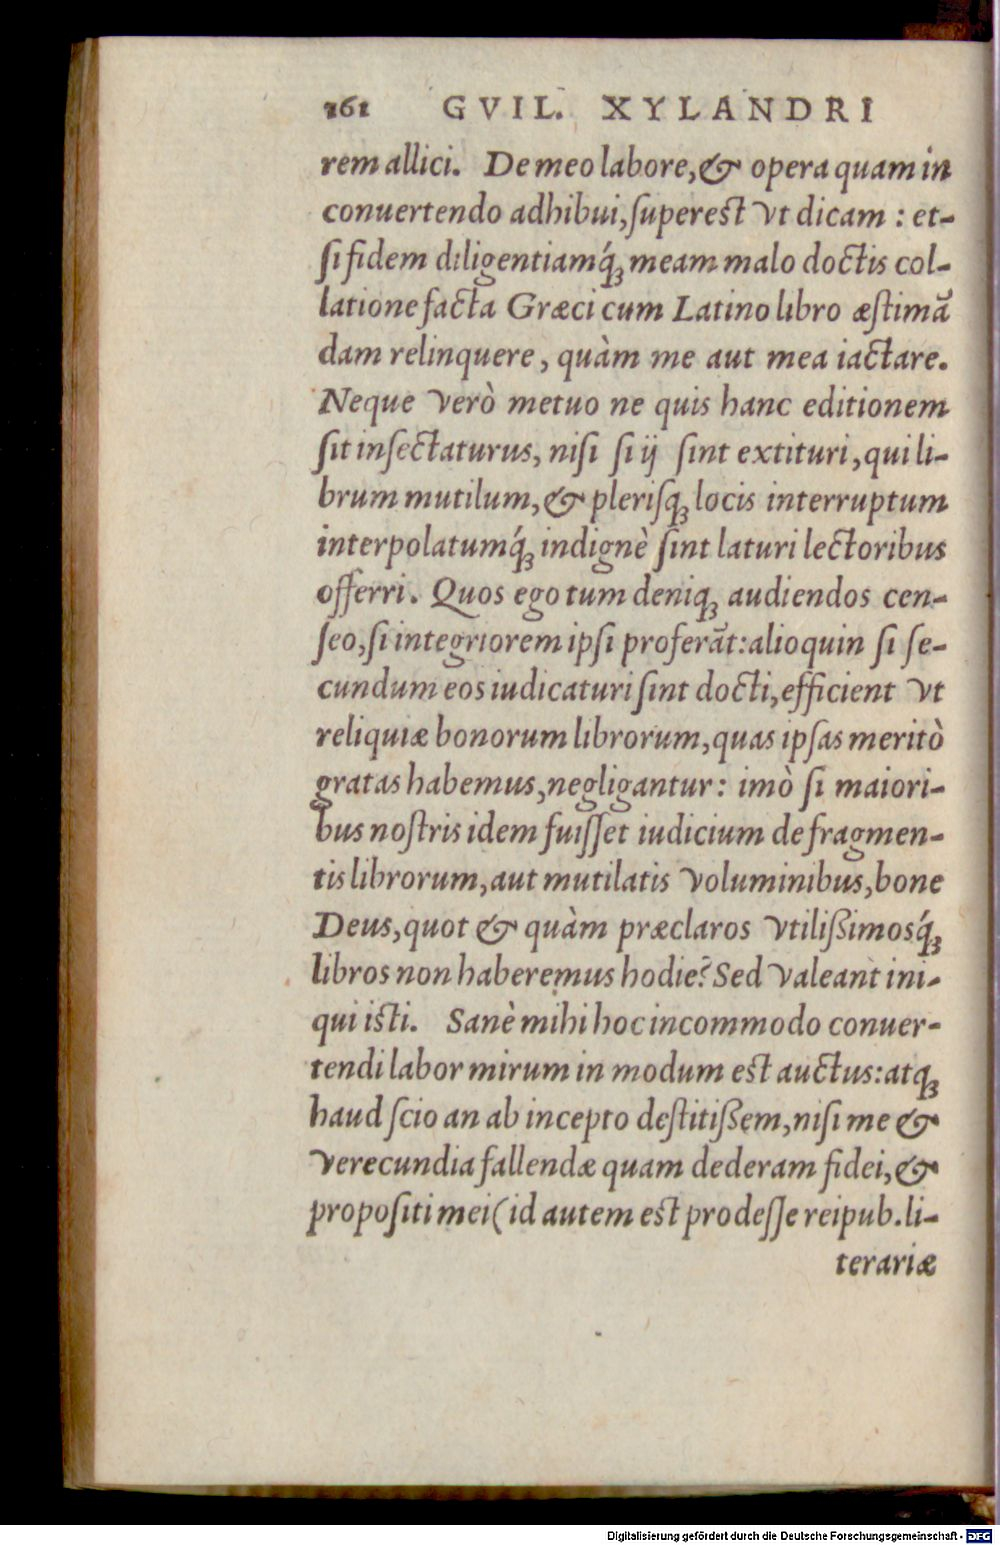 161 GVIL. XYLANDRI
rem allici. De meo labore, & opera quam in
conuertendo adhibui, ſupereſt vt dicam : et-
ſi fidem diligentiamq́ꝫ meam malo doctis col-
latione facta Græci cum Latino libro æſtimã
dam relinquere, quàm me aut mea iactare.
Neque verò metuo ne quis hanc editionem
ſit inſectaturus, niſi ſi ij ſint extituri, qui li-
brum mutilum, & pleriſqꝫ locis interruptum
interpolatumq́ꝫ indignè ſint laturi lectoribus
offerri. Quos ego tum deniqꝫ audiendos cen-
ſeo, ſi integriorem ipſi proferãt: alioquin ſi ſe-
cundum eos iudicaturi ſint docti, efficient vt
reliquiæ bonorum librorum, quas ipſas meritò
gratas habemus, negligantur: imò ſi maiori-
bus noſtris idem fuiſſet iudicium de fragmen-
tis librorum, aut mutilatis voluminibus, bone
Deus, quot & quàm præclaros vtilißimosq́ꝫ
libros non haberemus hodie? Sed valeant ini-
qui iſti. Sanè mihi hoc incommodo conuer-
tendi labor mirum in modum eſt auctus: atqꝫ
haud ſcio an ab incepto deſtitißem, niſi me &
verecundia fallendæ quam dederam fidei, &
propoſiti mei (id autem eſt prodeſſe reipub. li-
terariæ
Digitalisierung gefördert durch die Deutsche Forschungsgemeinschaft - DFG